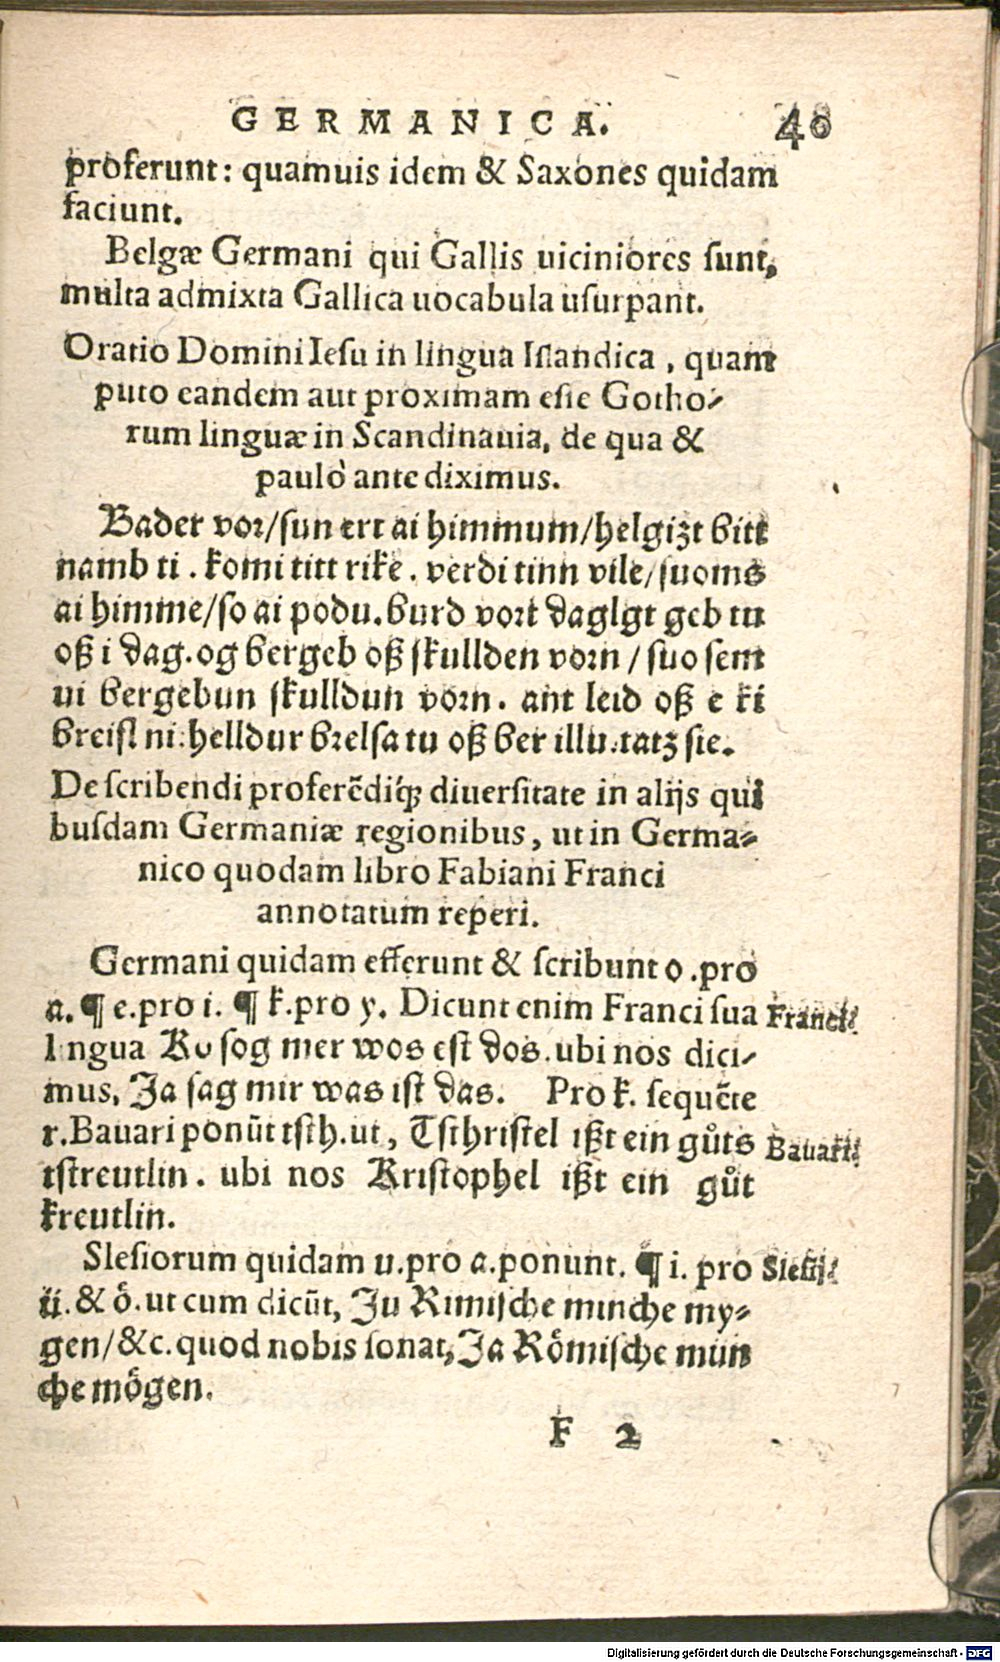 GERMANICA. 40
proferunt: quamuis idem & Saxones quidam
faciunt.
Belgæ Germani qui Gallis uiciniores ſunt,
multa admixta Gallica uocabula uſurpant.
Oratio Domini Ieſu in lingua Iſlandica, quam
puto eandem aut proximam eſſe Gotho-
rum linguæ in Scandinauia, de qua &
paulò ante diximus.
Bader vor/ſun ert ai himmum/helgizt bitt
namb ti. komi titt rike. verdi tinn vile/ſuoms
ai himme/ſo ai podu. burd vort daglgt geb tu
oß i dag. og bergeb oß ſkullden vorn/ſuo ſem
vi bergebun ſkulldun vorn. ant leid oß e ki
breiſl ni: helldur brelſa tu oß ber illu. tatz ſie.
De ſcribendi proferẽdiq́; diuerſitate in alijs qui
buſdam Germaniæ regionibus, ut in Germa-
nico quodam libro Fabiani Franci
annotatum reperi.
Germani quidam efferunt & ſcribunt o. pro
a. ¶ e. pro i. ¶ k. pro y. Dicunt enim Franci ſua Franci
lingua Ro ſog mer wos eſt dos. ubi nos dici-
mus, Ja ſag mir was iſt das. Pro k. ſequẽte
r. Bauari ponũt tſch. ut, Tſchriſtel ißt ein gůts Bauari
tſtreutlin. ubi nos Kriſtophel ißt ein gůt
kreutlin.
Sleſiorum quidam u. pro a. ponunt. ¶ i. pro Sleſij
ü. & ö. ut cum dicũt, Ju Rimiſche minche my-
gen/&c. quod nobis ſonat, Ja Römiſche mün
che mögen.
F 2
Digitalisierung gefördert durch die Deutsche Forschungsgemeinschaft - DFG